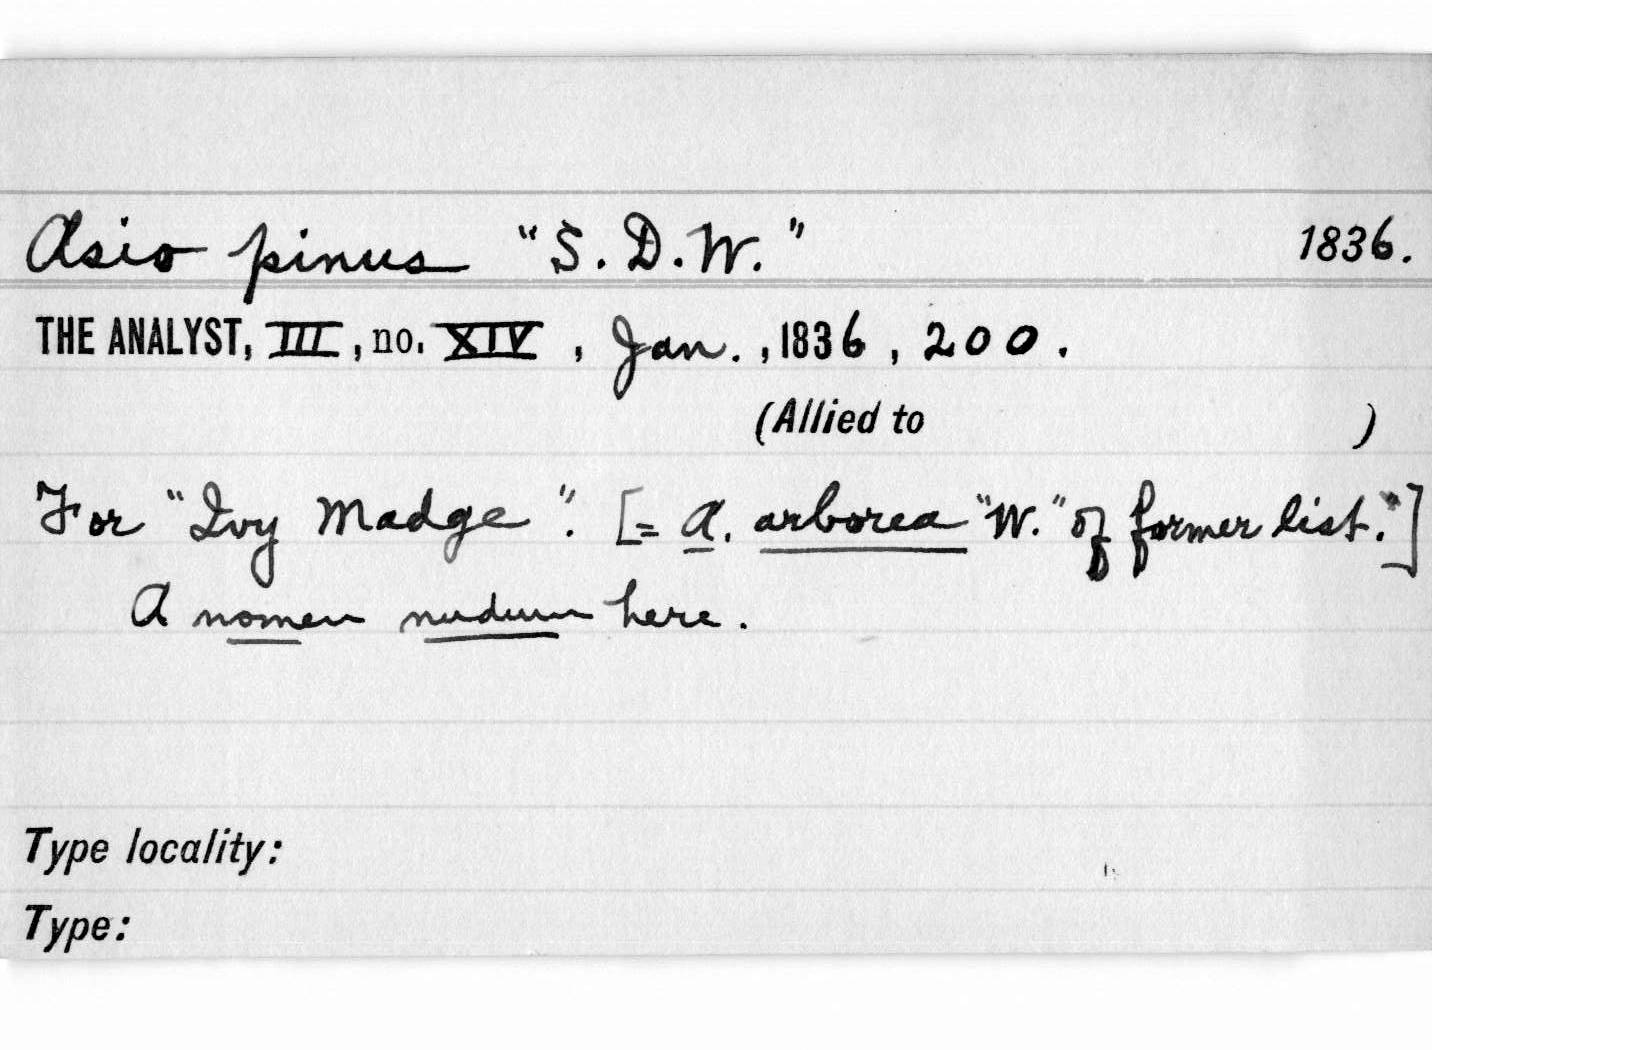 Asio pinus "S.D.W." 1836.
THE ANALYST, III, no. XIV, Jan., 1836, 200.
(Allied to )
For "Ivy Madge". [= A. arborea "W." of former list."]
A nomen nudum here.
Type locality:
Type: